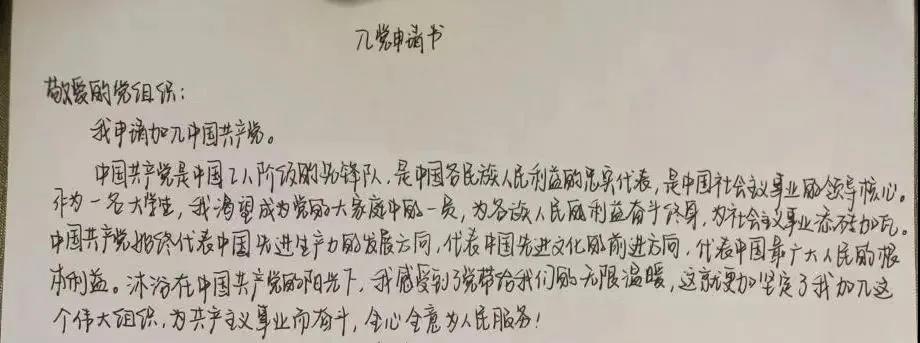 入党申请书
敬爱的党组织：
我申请加入中国共产党。
中国共产党是中国工人阶级的先锋队，是中国各民族人民利益的忠实代表，是中国社会主义事业的领导核心。
作为一名大学生，我渴望成为党的大家庭中的一员，为各族人民的利益奋斗终身，为社会主义事业添砖加瓦。
中国共产党始终代表中国先进生产力的发展方向，代表中国先进文化的前进方向，代表中国最广大人民的根
本利益。沐浴在中国共产党的阳光下，我感受到了党带给我们的无限温暖，这就更加坚定了我加入这
个伟大组织，为共产主义事业而奋斗，全心全意为人民服务！